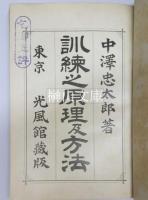 中澤忠太郎著
訓練之原理及方法
東京 光風館藏版